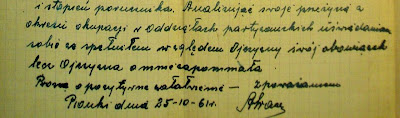 i stopień porucznika. Analizując swoje przeżycia z
okresu okupacji w oddziałach partyzanckich uświadamiam
sobie że spełniłem względem Ojczyzny swój obowiązek
lecz Ojczyzna o mnie zapomniała!
Proszę o pozytywne załatwienie — z poważaniem
Pionki dnia 25-10-61r.